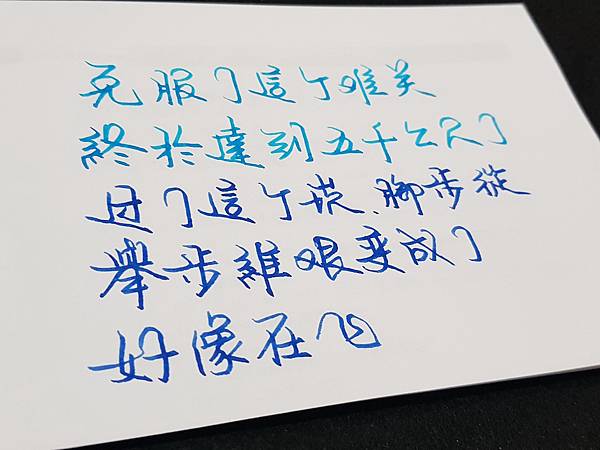 克服了這个难关
終於達到五千公尺了
过了這个崁、腳步從
舉步維艰变成了
好像在飞